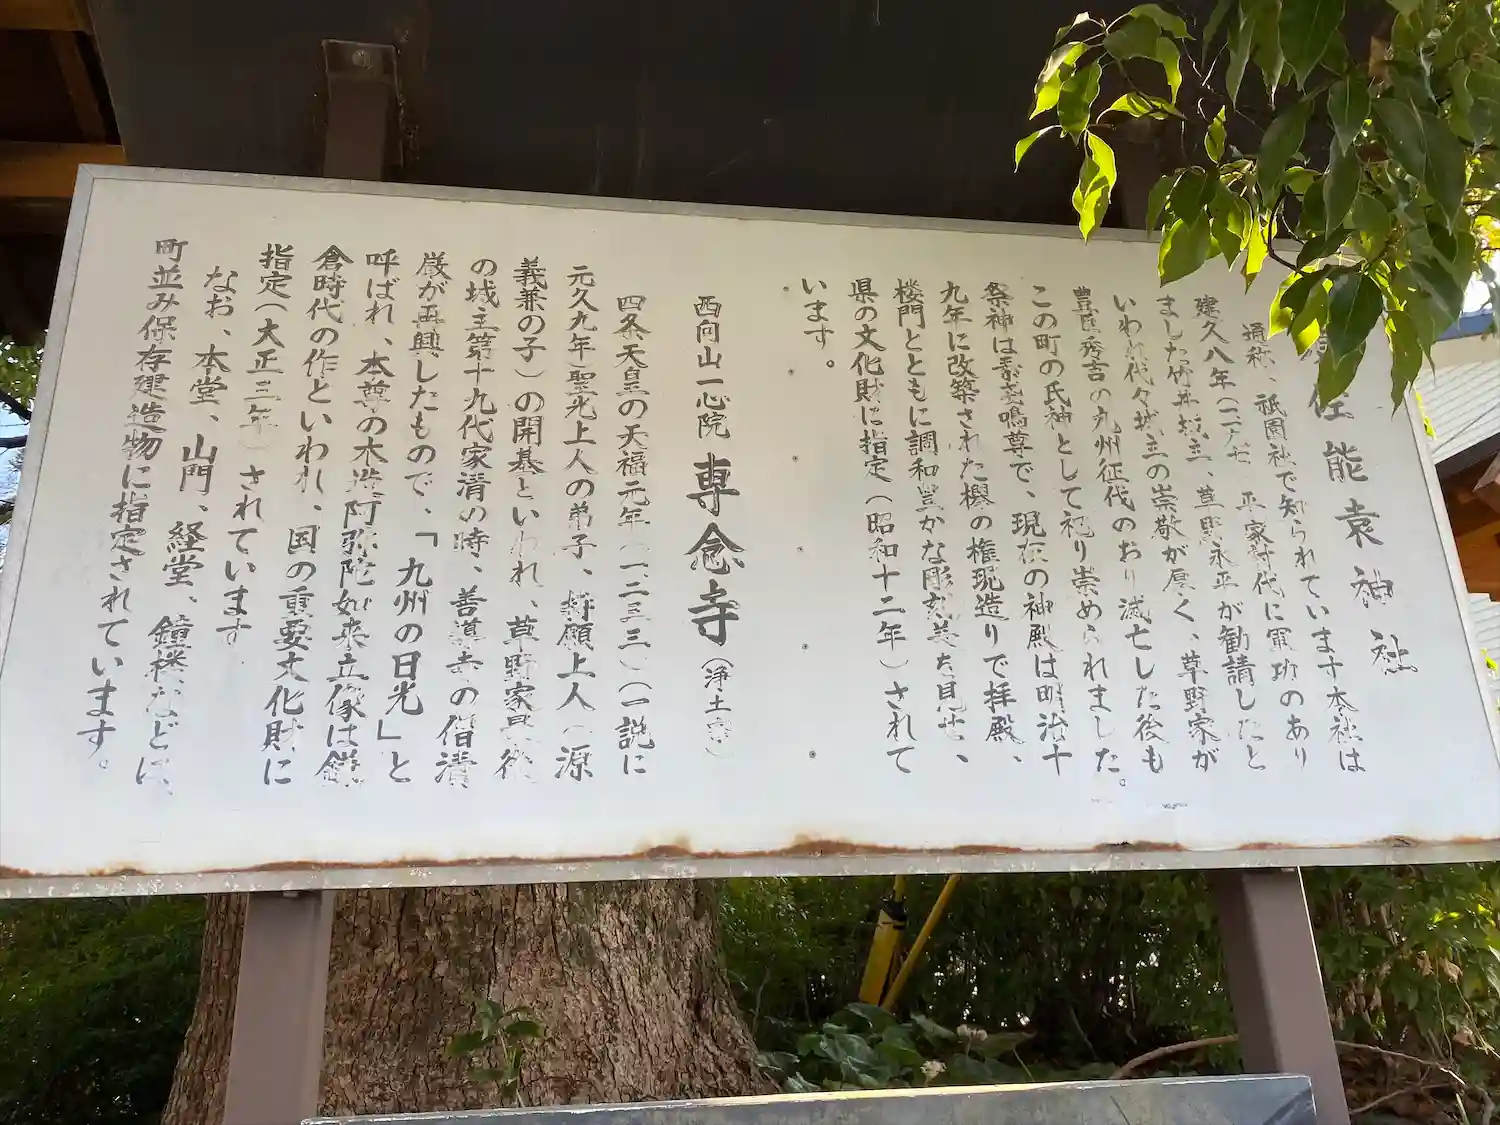 佐能袁神社
通称、祇園社で知られています本社は
建久八年(一一九七)平家討代に軍功のあり
ました竹井城主、草野永平が勧請したと
いわれ代々城主の崇敬が厚く、草野家が
豊臣秀吉の九州征代のおり滅亡した後も
この町の氏神として祀り崇められました。
祭神は素盞嗚尊で、現在の神殿は明治十
九年に改築された欅の権現造りで拝殿、
楼門とともに調和豊かな彫刻美を見せ、
県の文化財に指定(昭和十二年)されて
います。
西向山一心院 専念寺(浄土宗)
四条天皇の天福元年(一二三三)(一説に
元久九年)聖光上人の弟子、持願上人(源
義兼の子)の開基といわれ、草野家最後
の城主第十九代家清の時、善導寺の僧清
厳が再興したもので、「九州の日光」と
呼ばれ、本尊の木造阿弥陀如来立像は鎌
倉時代の作といわれ、国の重要文化財に
指定(大正三年)されています
なお、本堂、山門、経堂、鐘楼などは、
町並み保存建造物に指定されています。